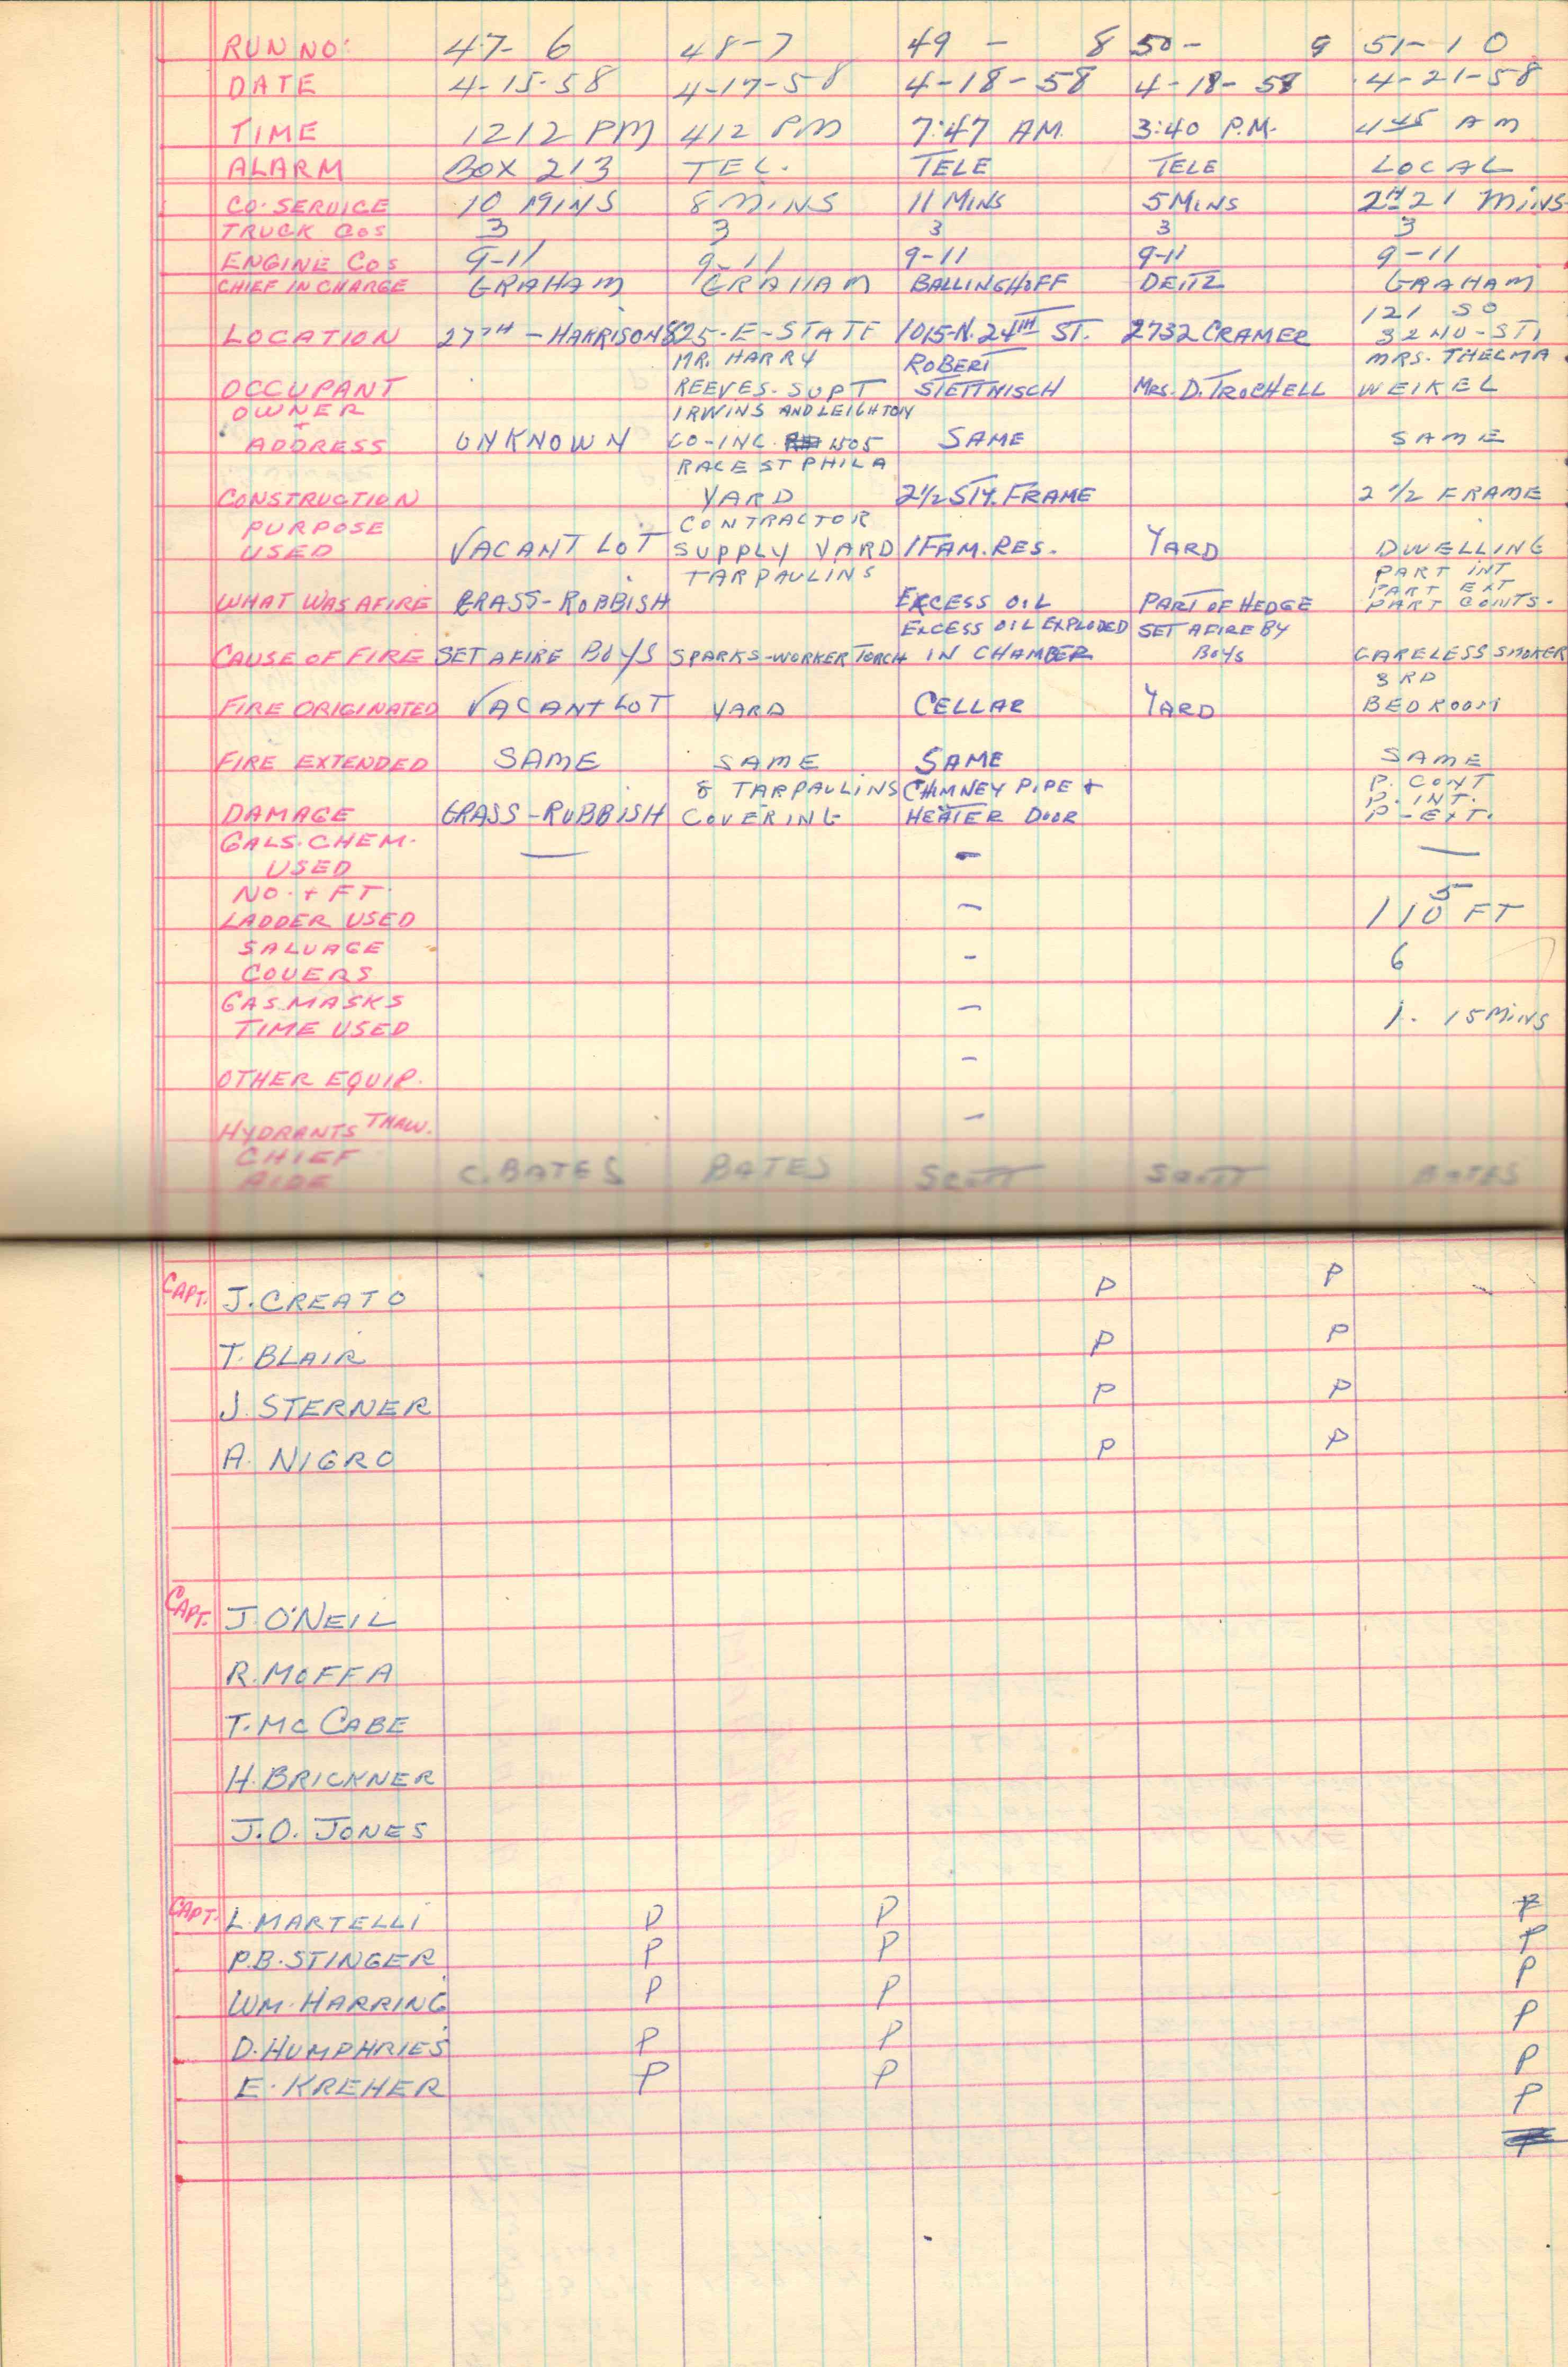 RUN NO: 47- 6 48-7 49 - 8 50- 9 51-10
DATE 4-15-58 4-17-58 4-18-58 4-18-58 4-21-58
TIME 1212 PM 412 PM 7:47 AM. 3:40 P.M. 445 AM
ALARM BOX 213 TEL. TELE TELE LOCAL
CO. SERVICE 10 MINS 8 MINS 11 MINS 5 MINS 2H 21 MINS
TRUCK COS 3 3 3 3 3
ENGINE COS 9-11 9-11 9-11 9-11 9-11
CHIEF IN CHARGE GRAHAM GRAHAM BALLINGHOFF DEITZ GRAHAM
121 SO
LOCATION 27TH - HARRISON 825-E-STATE 1015-N. 24TH ST. 2732 CRAMER 32ND-ST.
MR. HARRY ROBERT MRS. THELMA
OCCUPANT REEVES-SUPT STETTNISCH MRS. D. TROCHELL WEIKEL
OWNER IRWINS AND LEIGHTON
+
ADDRESS UNKNOWN CO-INC. 1505 SAME SAME
RACE ST PHILA
CONSTRUCTION YARD 2½ STY. FRAME 2 ½ FRAME
PURPOSE CONTRACTOR
USED VACANT LOT SUPPLY YARD 1 FAM. RES. YARD DWELLING
TARPAULINS PART INT
PART EXT
WHAT WAS AFIRE GRASS-RUBBISH EXCESS OIL PART OF HEDGE PART CONTS.
EXCESS OIL EXPLODED SET AFIRE BY
CAUSE OF FIRE SET AFIRE BOYS SPARKS-WORKER TORCH IN CHAMBER BOYS CARELESS SMOKER
3RD
FIRE ORIGINATED VACANT LOT YARD CELLAR YARD BEDROOM
FIRE EXTENDED SAME SAME SAME SAME
8 TARPAULINS CHIMNEY PIPE + P. CONT
P. INT.
DAMAGE GRASS-RUBBISH COVERING HEATER DOOR P-EXT.
GALS. CHEM. — - —
USED
NO. + FT.
LADDER USED - FT
SALVAGE - 6
COVERS
GAS MASKS - 1. 15 MINS
TIME USED
-
OTHER EQUIP.
HYDRANTS THAW. -
CHIEF
AIDE C. BATES BATES SCOTT SCOTT BATES
CAPT. J. CREATO P P
T. BLAIR P P
J. STERNER P P
A. NIGRO P P
CAPT. J. O'NEIL
R. MOFFA
T. MC CABE
H. BRICKNER
J.O. JONES
CAPT. L. MARTELLI P P P
P.B. STINGER P P P
WM. HARRING P P P
D. HUMPHRIES P P P
E. KREHER P P P
P